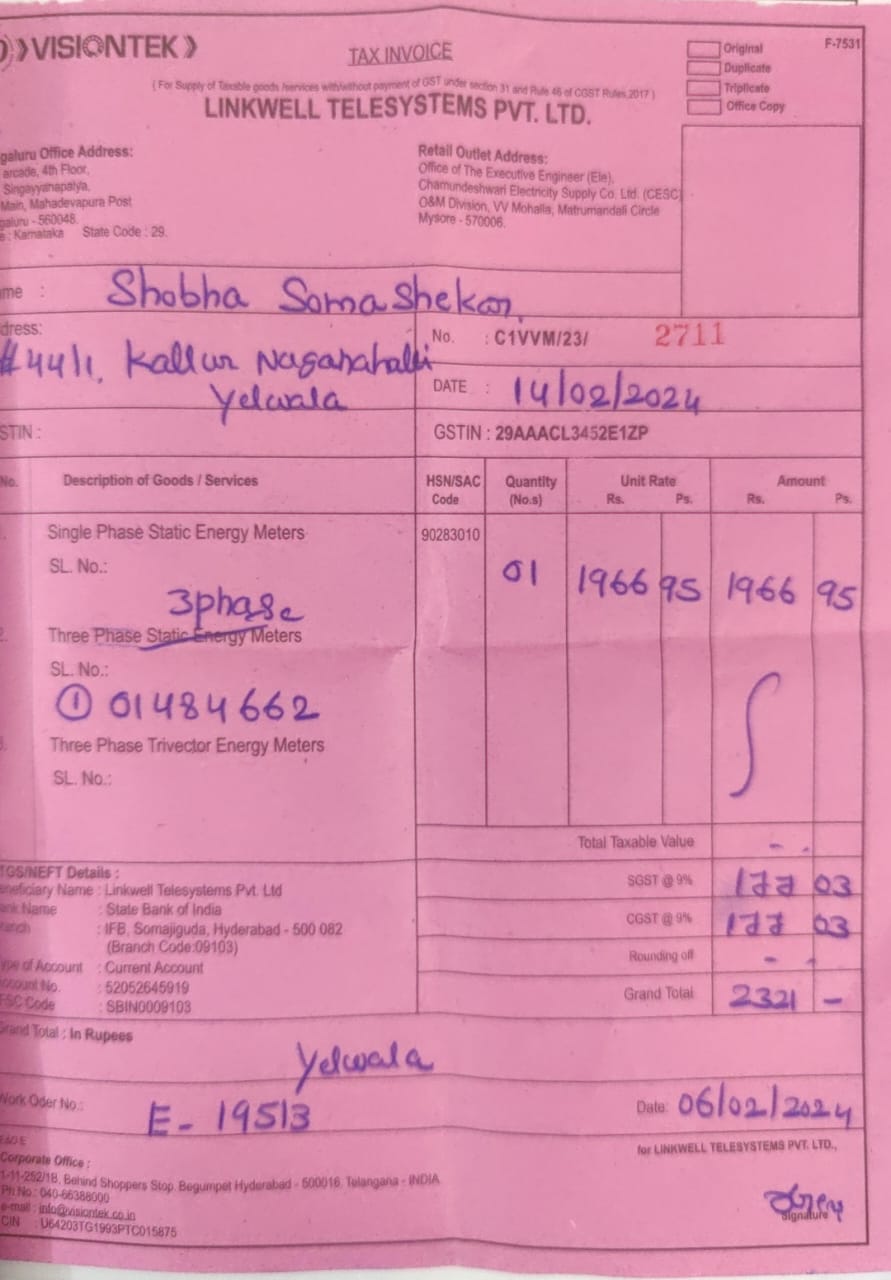 VISIONTEK
TAX INVOICE
Original
F-7531
Duplicate
Triplicate
Office Copy
( For Supply of Taxable goods /services with/without payment of GST under section 31 and Rule 46 of CGST Rules,2017 )
LINKWELL TELESYSTEMS PVT. LTD.
galuru Office Address:
arcade, 4th Floor,
Singayyanapalya,
Main, Mahadevapura Post
galuru - 560048.
e : Karnataka State Code : 29.
Retail Outlet Address:
Office of The Executive Engineer (Ele),
Chamundeshwari Electricity Supply Co. Ltd. (CESC)
O&M Division, VV Mohalla, Matrumandali Circle
Mysore - 570006.
me : Shobha Somashekar
dress: #44/1, Kallur Naganahalli
Yelwala
No. : C1VVM/23/ 2711
DATE : 14/02/2024
STIN :
GSTIN : 29AAACL3452E1ZP
No. Description of Goods / Services HSN/SAC Code Quantity (No.s) Unit Rate Rs. Ps. Amount Rs. Ps.
Single Phase Static Energy Meters 90283010
SL. No.:
01 1966 95 1966 95
3phase
2. Three Phase Static Energy Meters
SL. No.:
① 01484662
3. Three Phase Trivector Energy Meters
SL. No.:
Total Taxable Value - .
SGST @ 9% 177 03
CGST @ 9% 177 03
Rounding off - -
Grand Total 2321 -
TGS/NEFT Details :
eneficiary Name : Linkwell Telesystems Pvt. Ltd
ank Name : State Bank of India
ranch : IFB, Somajiguda, Hyderabad - 500 082
(Branch Code:09103)
ype of Account : Current Account
ccount No. : 52052645919
FSC Code : SBIN0009103
Grand Total : In Rupees
Yelwala
Work Oder No.: E - 19513
Date: 06/02/2024
E&O E
for LINKWELL TELESYSTEMS PVT. LTD.,
Corporate Office :
1-11-252/1B, Behind Shoppers Stop. Begumpet Hyderabad - 500016. Telangana - INDIA
Ph No : 040-66388000
e-mail : info@visiontek.co.in
CIN : U64203TG1993PTC015875
Signature